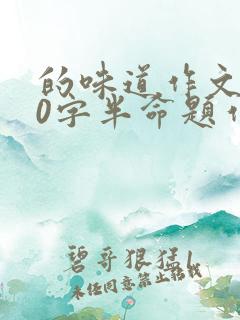 的味道作文
0字半命题作
碧哥狠猛l
未任同意禁止转载